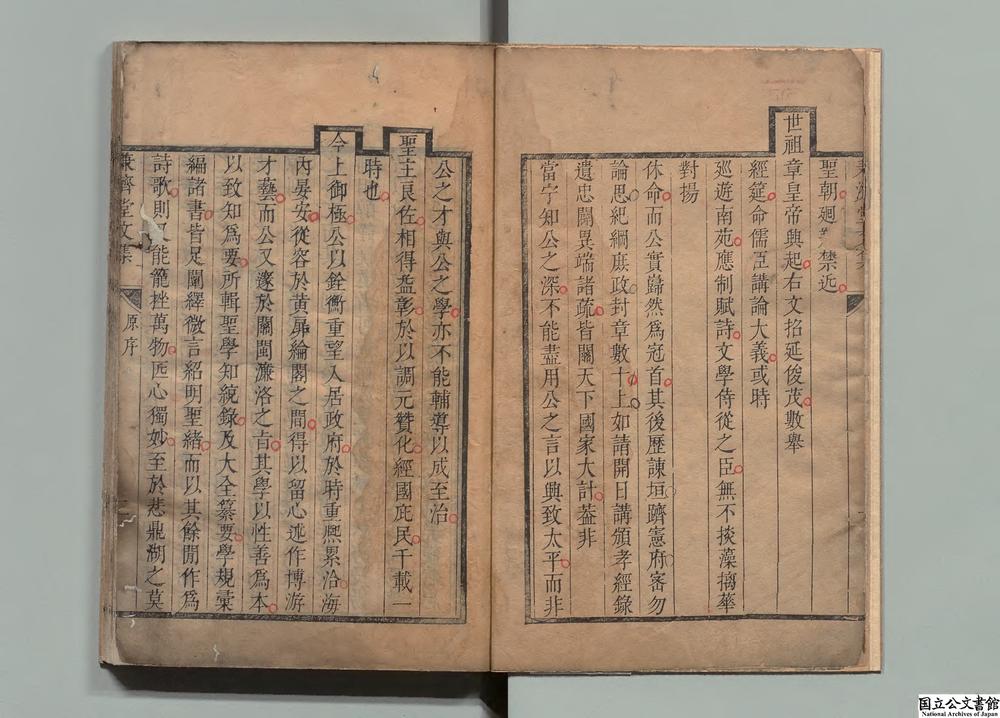 聖朝廻翔禁近
世祖章皇帝興起右文招延俊茂數舉
經筵命儒臣講論大義或時
廵遊南苑應制賦詩文學侍從之臣無不掞藻摛華
對揚
休命而公實巋然爲冠首其後歷諫垣躋憲府密勿
論思紀綱庶政封章數十上如請開日講頒孝經錄
遺忠闢異端諸疏皆關天下國家大計葢非
當宁知公之深不能盡用公之言以興致太平而非
公之才與公之學亦不能輔導以成至治
聖主良佐相得益彰於以調元贊化經國庇民千載一
時也
今上御極公以銓衡重望入居政府於時重熈累洽海
內晏安從容於黃扉綸閣之間得以留心述作博游
才藝而公又邃於關閩濂洛之㫖其學以性善爲本
以致知爲要所輯聖學知統錄及大全纂要學規彙
編諸書皆足闡繹微言紹明聖緒而以其餘閒作爲
詩歌則又能籠挫萬物匠心獨妙至於悲鼎湖之莫
兼濟堂文集
原序
二
国立公文書館
National Archives of Japan